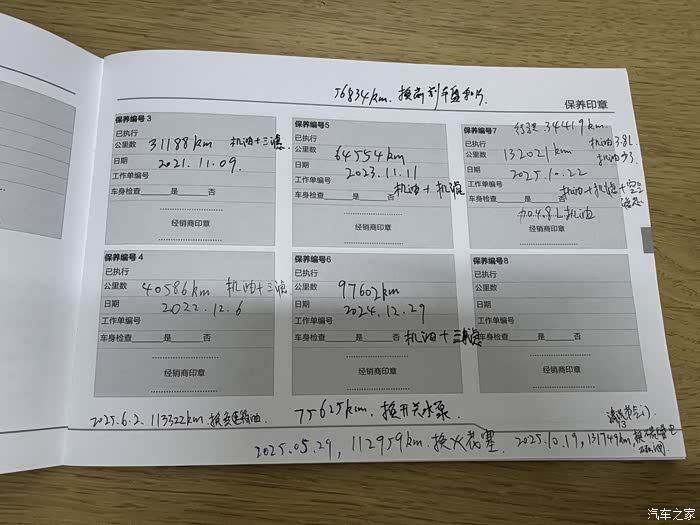 56834km. 换前刹车盘和片.
保养印章
保养编号3
已执行
公里数 31188km 机油+三滤.
日期 2021.11.09.
工作单编号
车身检查 是 否
经销商印章
保养编号5
已执行
公里数 64554km
日期 2023.11.11
工作单编号 机油+机滤
车身检查 是 否
经销商印章
保养编号7 行驶 34419km.
已执行 机油3.8L
公里数 132021km
日期 2025.10.22
工作单编号 机油+机滤+空气
车身检查 是 否
加0.4.8L机油
经销商印章
保养编号 4
已执行
公里数 40586km 机油+三滤.
日期 2022.12.6
工作单编号
车身检查 是 否
经销商印章
保养编号6
已执行
公里数 97602km
日期 2024.12.29
工作单编号
车身检查 是 否 机油+三滤
经销商印章
保养编号8
已执行
公里数
日期
工作单编号
车身检查 是 否
经销商印章
2025.6.2. 113322km 换变速箱油
75625km. 换开关水泵
2025.05.29, 112959km. 换火花塞
2025.10.19, 131749km, 换
汽车之家